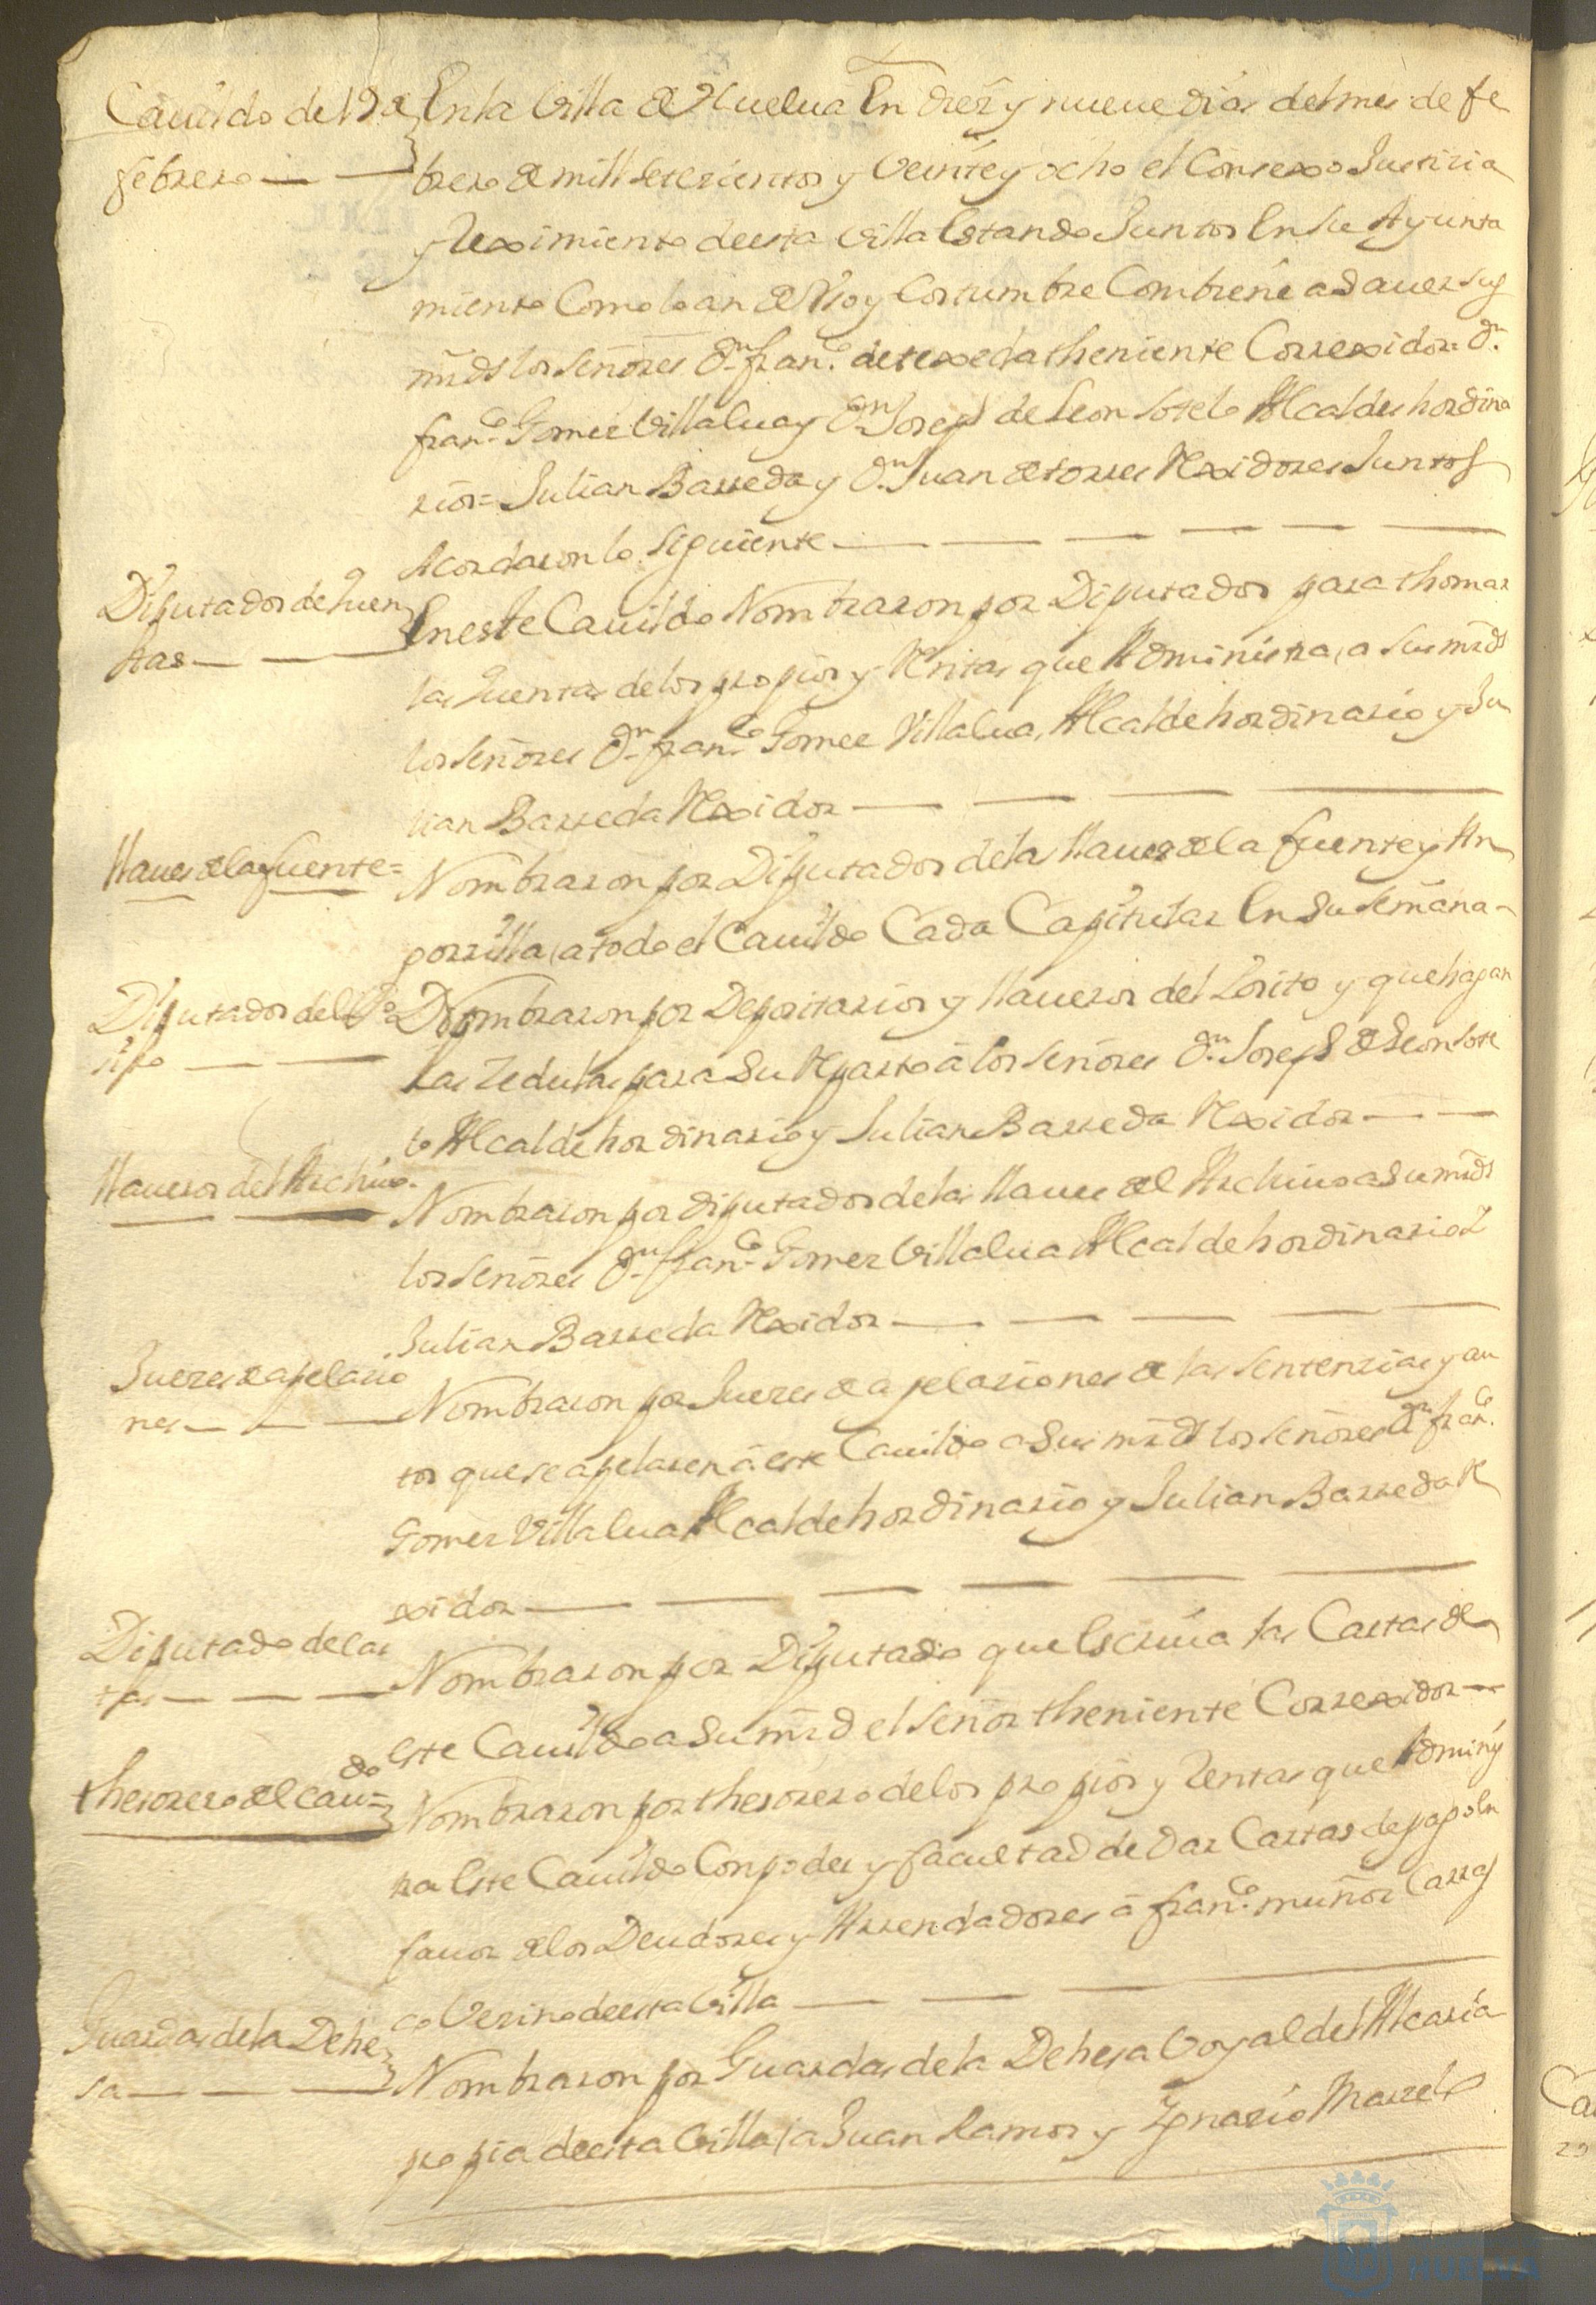 Cauildo de 19 de
febrero
En la Villa de Huelua En diez y nueue dias del mes de fe
brero de mill setezientos y Veinte y ocho el Consexo Justizia
y Reximiento desta Villa Estando Juntos En su Ayunta
miento Como lo an de Vso y Costumbre Combiene a sauer sus
mrds los señores Dn. franco. de texeda theniente Correxidor = Dn.
franco. Gomez Villalua y Dn. Joseph de Leon Sotelo Alcaldes hordina
rios = Julian Barreda y Dn. Juan de torres Rexidores Juntos
Acordaron lo siguiente
Diputados de quen
tas
En este Cauildo Nombraron por Diputados para thomar
las quentas de los propios y Rentas que Administra, a sus mrds
los señores Dn. franco. Gomez Villalua, Alcalde hordinario y Ju
lian Barreda Rexidor
llaues de la fuente =
Nombraron por Diputados de las llaues de la fuente y An
gorrilla, a todo el Cauildo Cada Capitular En su semana
Diputados del Po
sito
Nombraron por Depositarios y llaueros del Posito y que hagan
las Zedulas para su Reparto â los señores Dn. Joseph de Leon Sote
lo Alcalde hordinario y Julian Barreda Rexidor
llaueros del Archiuo.
Nombraron por diputados de las llaues del Archiuo a sus mrds
los señores Dn. franco. Gomez Villalua Alcalde hordinario Y
Julian Barreda Rexidor
Juezes de apelazio
nes
Nombraron por Juezes de apelaziones de las sentenzias y au
tos que se apelasen â este Cauildo a sus mrds los señores Dn. franco.
Gomez Villalua Alcalde hordinario y Julian Barreda Re
xidor
Diputado de car
tas
Nombraron por Diputado que Escriua las Cartas de
Este Cauildo a su mrd el señor theniente Correxidor
thesorero del cau=do
Nombraron por thesorero de los propios y Rentas que Adminis
tra Este Cauildo Con poder y facultad de dar Cartas de pago En
fauor de los Deudores y Arrendadores â franco. muñoz Carras
co Vezino desta Villa
Guardas de la Dehe
sa
Nombraron por Guardas de la Dehesa Boyal del Alcaria
propia desta Villa, a Juan Ramos y Ygnazio Marcelo
HUELVA